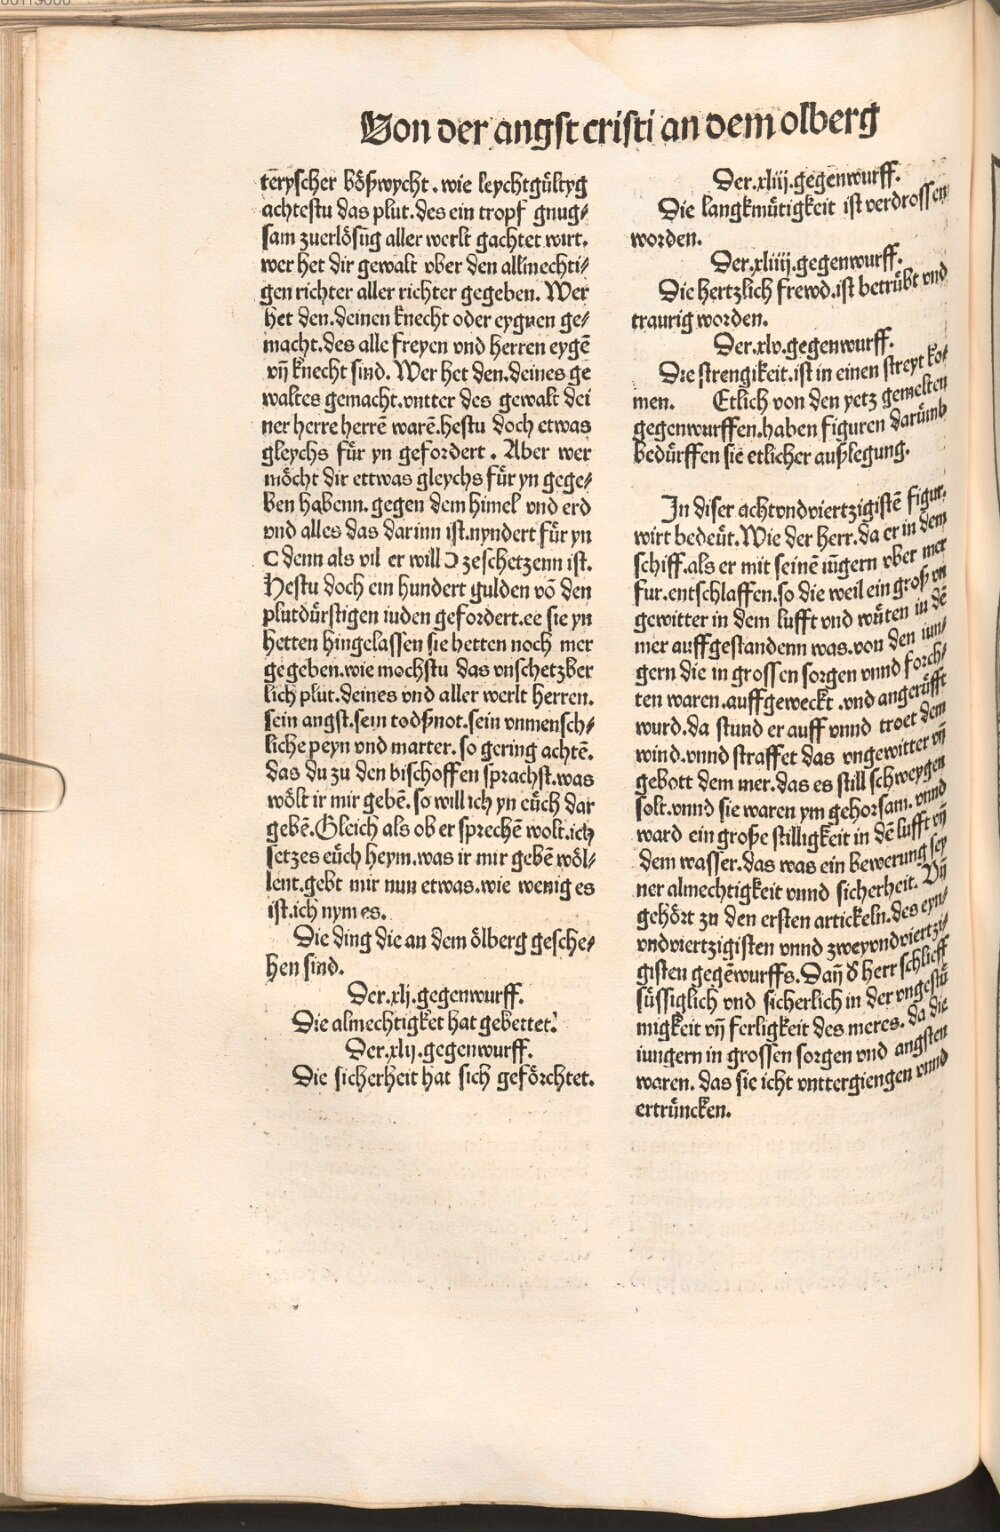 Von der angst cristi an dem olberg
teryscher bößwycht. wie leychtgültyg
achtestu das plut. des ein tropf gnug⸗
sam zuerlösūg aller werlt gachtet wirt.
wer het dir gewalt vber den allmechti⸗
gen richter aller richter gegeben. Wer
het den. deinen knecht oder eygnen ge⸗
macht. des alle freyen vnd herren eygē
vn̄ knecht sind. Wer het den. deines ge
waltes gemacht. vntter des gewalt dei
ner herre herrē warē. hestu doch etwas
gleychs für yn gefordert. Aber wer
möcht dir ettwas gleychs für yn gege⸗
ben habenn. gegen dem himel vnd erd
vnd alles das darinn ist. nyndert für yn
( denn als vil er will ) zeschetzenn ist.
Hestu doch ein hundert gulden vō den
plutdürstigen iuden gefordert. ee sie yn
hetten hingelassen sie hetten noch mer
gegeben. wie mochstu das vnschetzber
lich plut. deines vnd aller werlt herren.
sein angst. sein todßnot. sein vnmensch⸗
liche peyn vnd marter. so gering achtē.
das du zu den bischoffen sprachst. was
wölt ir mir gebē. so will ich yn eüch dar
gebē. Gleich als ob er sprechē wolt. ich
setzes eüch heym. was ir mir gebē wöl⸗
lent. gebt mir nun etwas. wie wenig es
ist. ich nym es.
Die ding die an dem ölberg gesche⸗
hen sind.
Der. xlj. gegenwurff.
Die almechtigket hat gebettet.
Der. xlij. gegenwurff.
Die sicherheit hat sich geförchtet.
Der. xliij. gegenwurff.
Die langkmütigkeit ist verdrossen
worden.
Der. xliiij. gegenwurff.
Die hertzlich frewd. ist betrübt vnd
traurig worden.
Der. xlv. gegenwurff.
Die strengikeit. ist in einen streyt ko⸗
men. Etlich von den yetz gemelten
gegenwurffen. haben figuren darümb
bedürffen sie etlicher außlegung.
In diser achtvndviertzigistē figur.
wirt bedeüt. Wie der herr. da er in dem
schiff. als er mit seinē iūgern vber mer
fur. entschlaffen. so die weil ein groß vn
gewitter in dem lufft vnd wüten in dē
mer auffgestandenn was. von den iun⸗
gern die in grossen sorgen vnnd forch⸗
ten waren. auffgeweckt. vnd angerüfft
wurd. da stund er auff vnnd troet dem
wind. vnnd straffet das vngewitter vn̄
gebott dem mer. das es still schweygen
solt. vnnd sie waren ym gehorsam. vnnd
ward ein große stilligkeit in dē lufft vn̄
dem wasser. das was ein bewerung sey
ner almechtigkeit vnnd sicherheit. Vn̄
gehört zu den ersten artickeln. des eyn⸗
vndviertzigisten vnnd zweyvndviertzi⸗
gisten gegēwurffs. Dan̄ d̕ herr schlieff
süssiglich vnd sicherlich in der vngestü
migkeit vn̄ ferligkeit des meres. da die
iungern in grossen sorgen vnd angsten
waren. das sie icht vnttergiengen vnnd
ertrüncken.